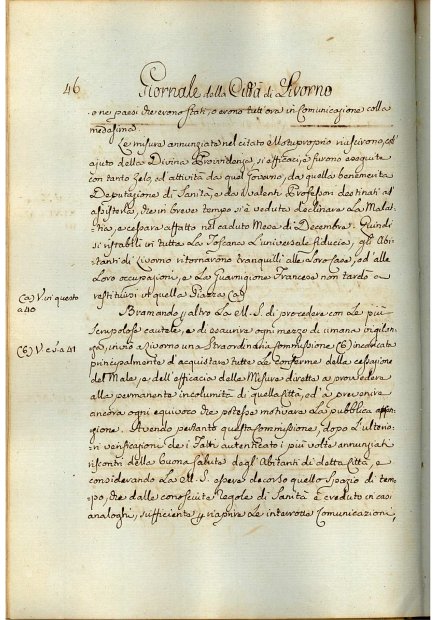 46 Giornale della Città di Livorno
o nei paesi che erono stati, o erono tutt'ora in Comunicazione colla
medasima.
Le misure annunziate nel citato Motuproprio riuscirono, coll'
ajuto della Divina Providenza, sì efficaci, e furono eseguite
con tanto zelo, ed attività da quel Governo, da quella benemerita
Deputazione di Sanità, e dei valenti Professori destinati ad
assisterla, che in breve tempo si è veduta declinare La Malat-
tia, e cessare affatto nel caduto Mese di Decembre. Quindi
si ristabilì in tutta La Toscana L'universale fiducia, gli Abi-
tanti di Livorno ritornarono tranquilli alle Loro Case, ed alle
Loro occupazioni, e La Guarnigione Francese non tardò a
restituirsi in quella Piazza (a)
(a) V. in questo
a 40
Bramando peraltro La M. S. di procedere con Le più
Scrupolose cautele, e di esaurire ogni mezzo di umana vigilen-
za, inviò a Livorno una Straordinaria Commissione (b) incaricata
(b) V. a 41
principalmente d'acquistare tutte Le Conferme della cessazione
del Male, e dell'efficacia delle Misure dirette a provvedere
alla permanente incolumità di quella Città, ed a prevenire
ancora ogni equivoco che potesse motivare La pubblica
gione. Avendo pertanto questa Commissione, dopo L'ulterio-
ri verificazioni dei Fatti autenticato i più volte annunziati
riscontri della buona Salute degl'Abitanti di detta Città, e
considerando La M. S. essere decorso quello Spazio di tem-
po, che dalle conosciute Regole di Sanità è creduto in casi
analoghi, sufficiente p riaprire Le interrotte Comunicazioni,